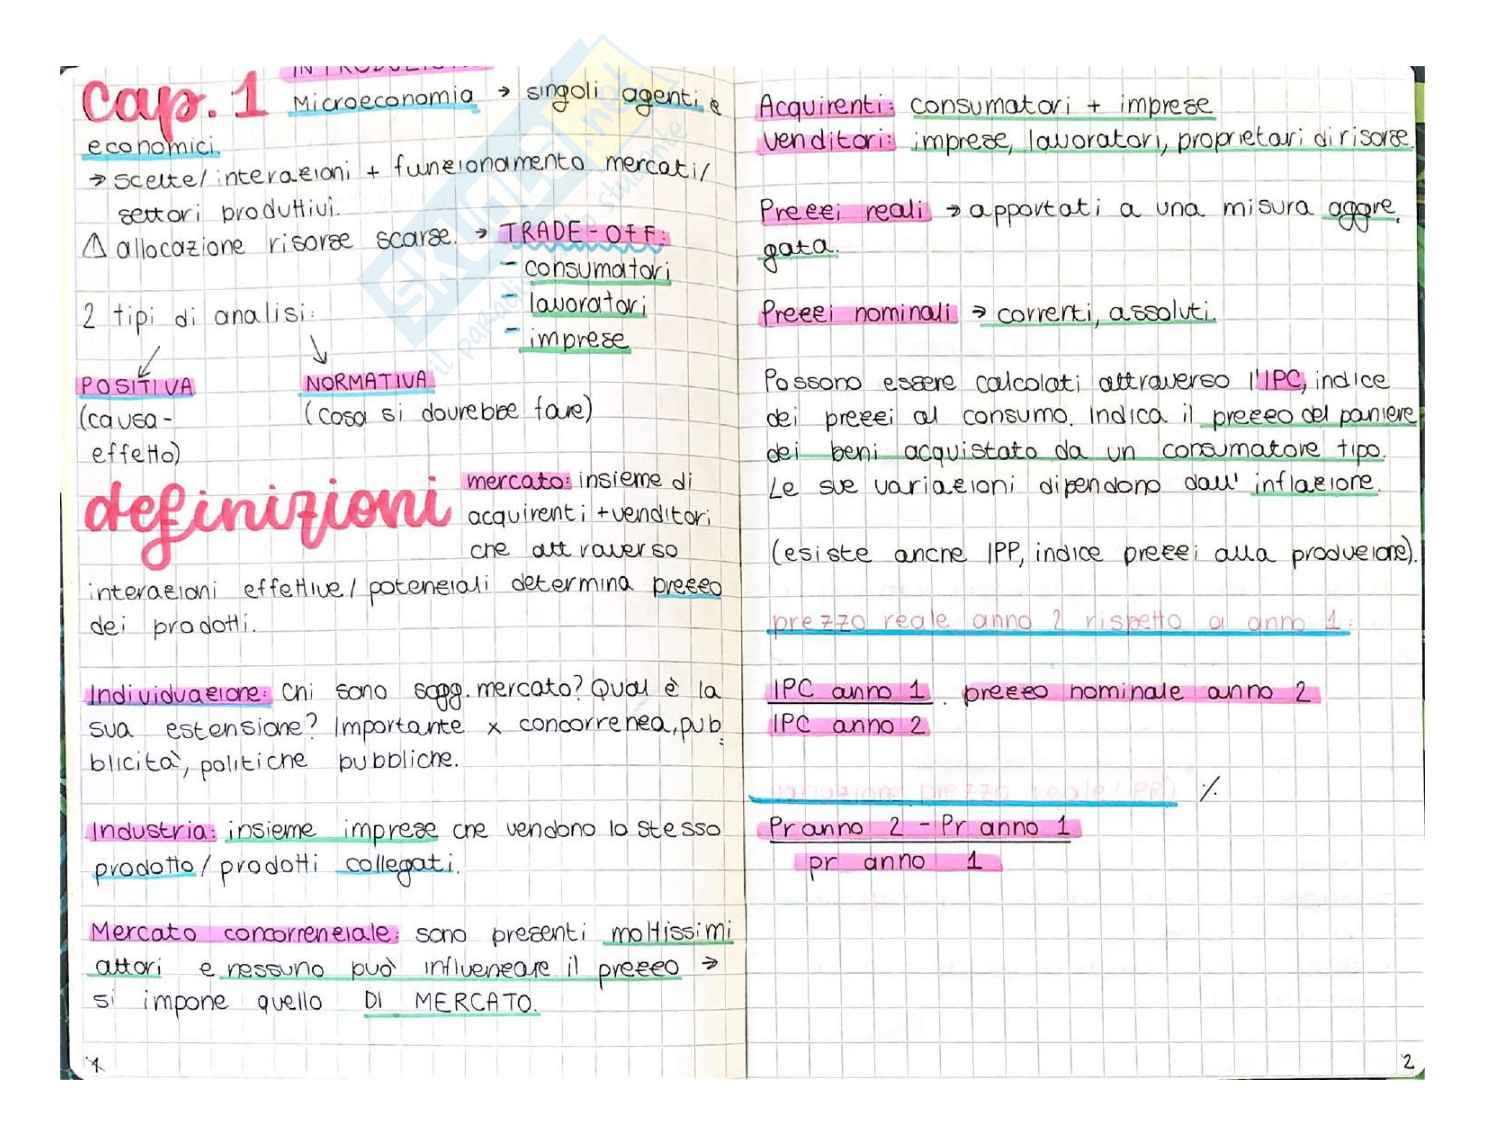 Cap. 1
INTRODUZIONE
Microeconomia → singoli agenti e
economici.
→ scelte/interazioni + funzionamento mercati/
settori produttivi.
⚠ allocazione risorse scarse. → TRADE-OFF:
- consumatori
- lavoratori
- imprese
2 tipi di analisi:
POSITIVA
(causa-
effetto)
NORMATIVA
(cosa si dovrebbe fare)
definizioni
mercato: insieme di
acquirenti + venditori
che attraverso
interazioni effettive/potenziali determina prezzo
dei prodotti.
Individuazione: chi sono sogg. mercato? Qual è la
sua estensione? Importante x concorrenza, pub
blicità, politiche pubbliche.
Industria: insieme imprese che vendono lo stesso
prodotto/prodotti collegati.
Mercato concorrenziale: sono presenti moltissimi
attori e nessuno può influenzare il prezzo →
si impone quello DI MERCATO.
1
Acquirenti: consumatori + imprese
venditori: imprese, lavoratori, proprietari di risorse.
Prezzi reali → apportati a una misura aggre.
gata.
Prezzi nominali → correnti, assoluti.
Possono essere calcolati attraverso l'IPC, indice
dei prezzi al consumo. Indica il prezzo del paniere
dei beni acquistato da un consumatore tipo.
Le sue variazioni dipendono dall' inflazione.
(esiste anche IPP, indice prezzi alla produzione).
prezzo reale anno 2 rispetto a anno 1:
IPC anno 1 . prezzo nominale anno 2
IPC anno 2
variazione prezzo reale (PP) %
Pr anno 2 - Pr anno 1
pr anno 1
2
SKUOLA.net
il paradiso dello studente